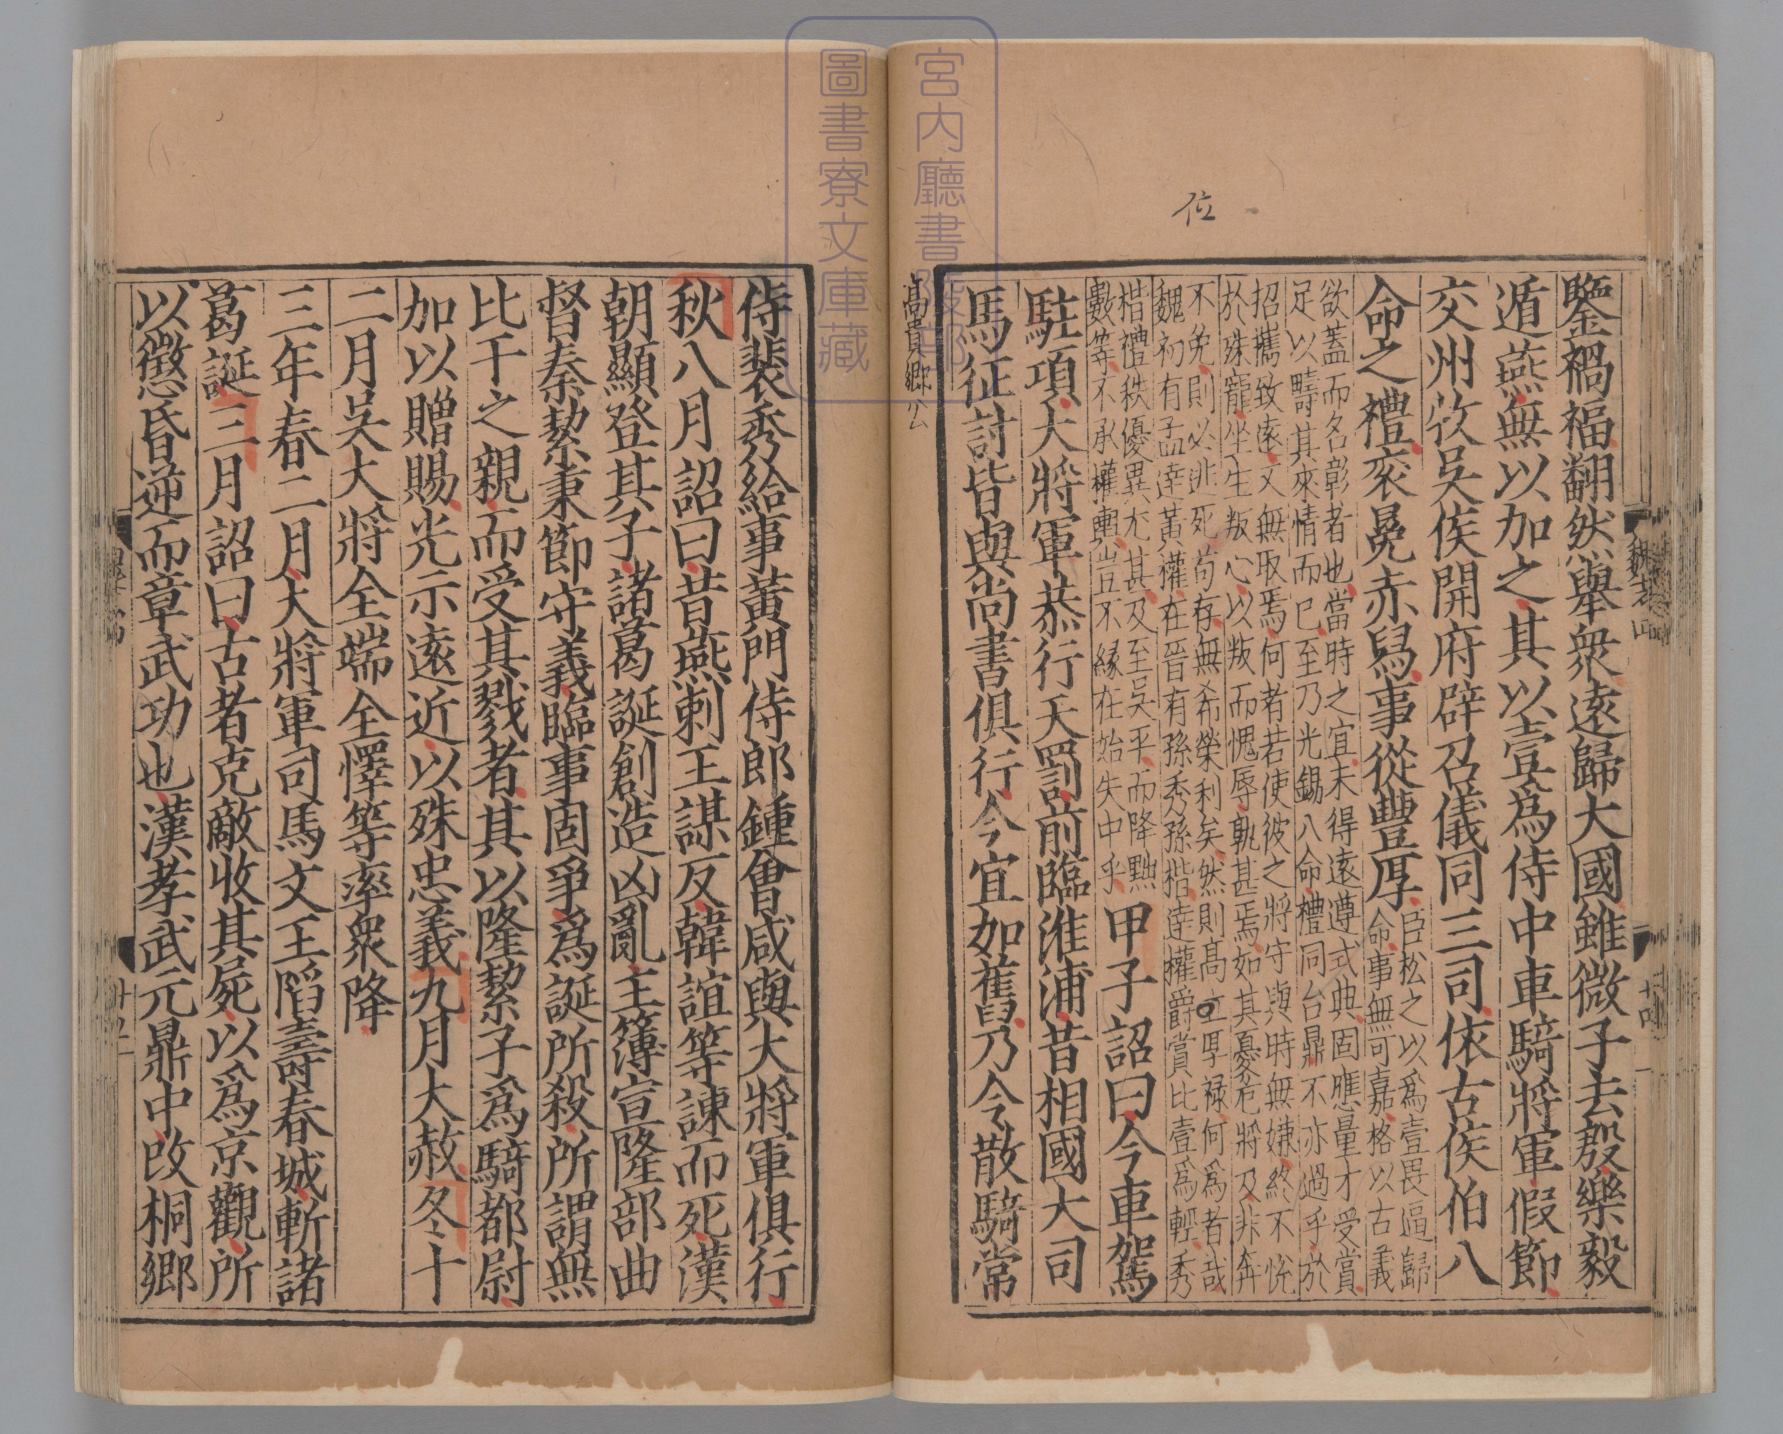 位
鑒禍福翻然舉衆遠歸大國雖微子去殷樂毅
遁燕無以加之其以壹爲侍中車騎將軍假節
交州牧吳侯開府辟召儀同三司依古侯伯八
命之禮衮冕赤舄事從豐厚臣松之以爲壹畏逼歸
命事無可嘉格以古義
欲蓋而名彰者也當時之宜未得遠遵式典固應量才受賞
足以疇其來情而已至乃光錫八命禮同台鼎不亦過乎於
招攜致遠又無取焉何者若使彼之將守與時無嫌終不悅
於殊寵坐生叛心以叛而愧辱孰甚焉如其憂危將及非奔
不免則必逃死苟存無希榮利矣然則高位厚祿何爲者哉
魏初有孟達黃權在晉有孫秀孫楷達權爵賞比壹爲輕秀
楷禮秩優異尤甚及至吳平而降黜
數等不承權輿豈不緣在始失中乎甲子詔曰今車駕
駐項大將軍恭行天罰前臨淮浦昔相國大司
馬征討皆與尚書俱行今宜如舊乃令散騎常
高貴鄉公
侍裴秀給事黃門侍郎鍾會咸與大將軍俱行
秋八月詔曰昔燕刺王謀反韓誼等諫而死漢
朝顯登其子諸葛誕創造凶亂主簿宣隆部曲
督秦絜秉節守義臨事固爭爲誕所殺所謂無
比干之親而受其戮者其以隆絜子爲騎都尉
加以贈賜光示遠近以殊忠義九月大赦冬十
二月吳大將全端全懌等率衆降
三年春二月大將軍司馬文王陷壽春城斬諸
葛誕三月詔曰古者克敵收其屍以爲京觀所
以懲昏逆而章武功也漢孝武元鼎中改桐鄉
宮内廳書陵部
圖書寮文庫藏